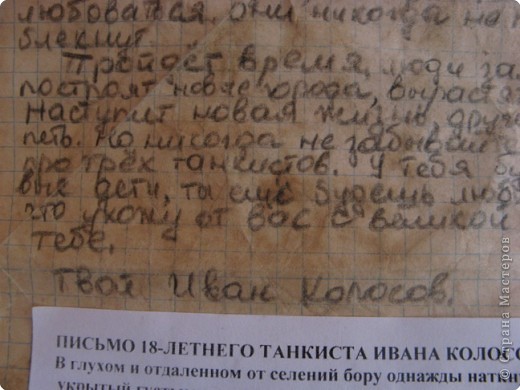 любоваться. они никогда не п
блекнут.
Пройдёт время, люди за
построят новые города, вырастя
наступит новая жизнь, друг
петь. Но никогда не забывай
про трёх танкистов. У тебя бу
вые дети, ты ещё будешь люб
что ухожу от вас с великой
тебе.
Твой Иван Колосов.
ПИСЬМО 18-ЛЕТНЕГО ТАНКИСТА ИВАНА КОЛОСО
В глухом и отдаленном от селений бору однажды натк
укрытый
© Страна Мастеров